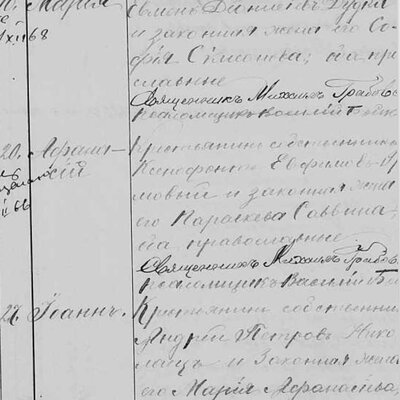 Марія
Семенъ Даніиловъ Дудка
и законная жена его Со
фія Симонова; оба пра
вославные
Священникъ Михаилъ Грабов
псаломщикъ Василій
20. Афана
сій
Крестьянинъ собственникъ
Ксенофонтъ Евфимовъ
и законная жена
его Параскева Саввина
оба православные.
Священникъ Михаилъ Грабов
псаломщикъ Василій
27. Іоаннъ.
Крестьянинъ собственни
Андрей Петровъ Нико
лаецъ и законная жена
его Марія Афанасьева,